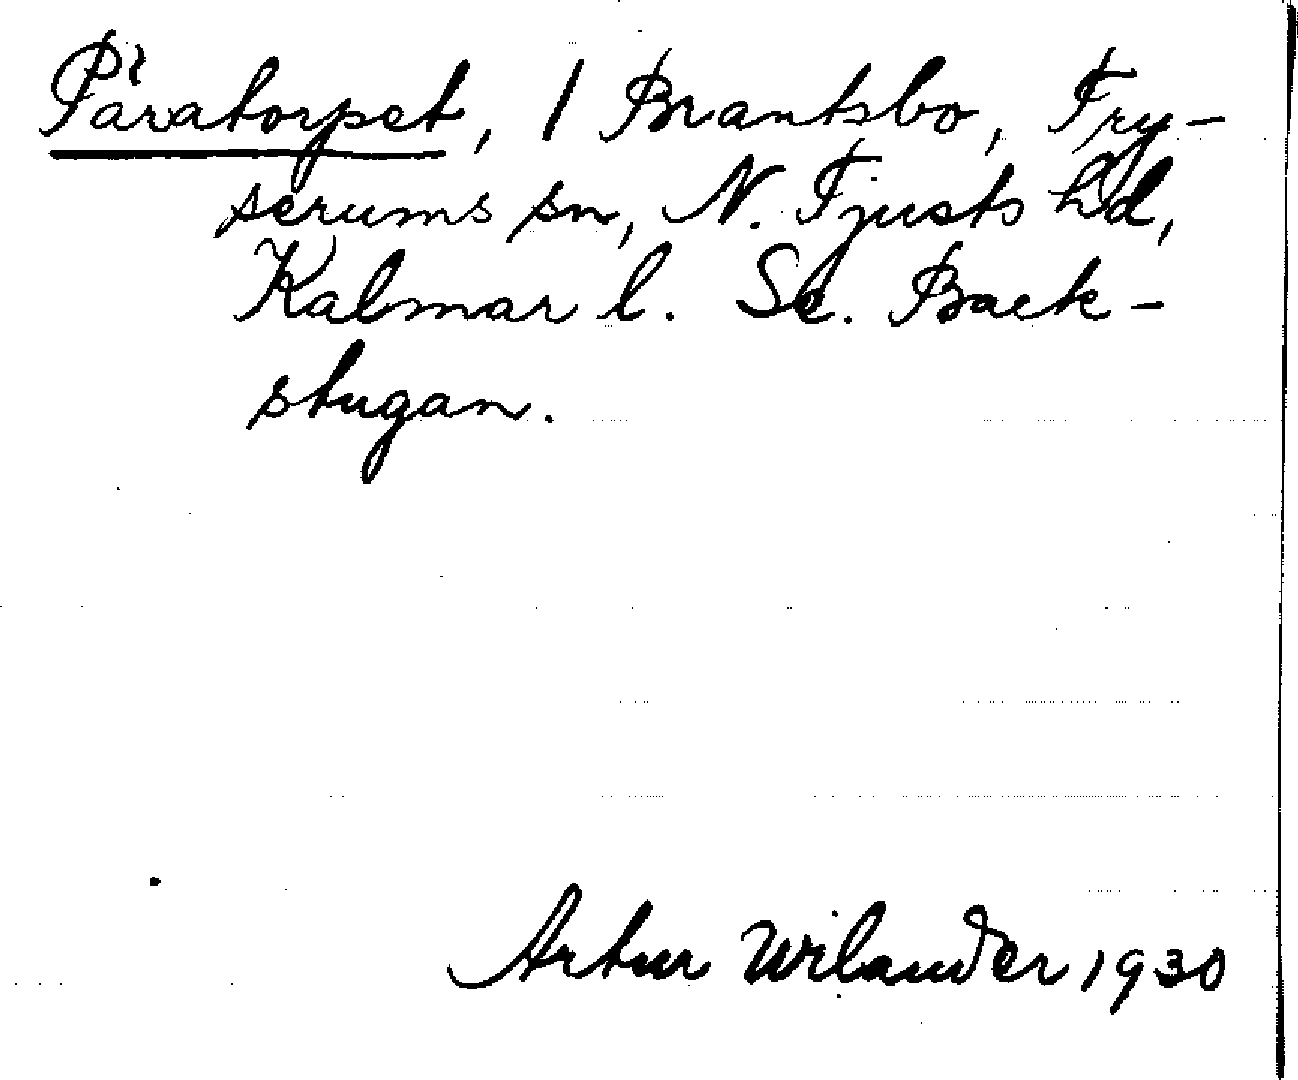 Päratorpet, / Brantsbo, Try-
serums sn, N. Tjusts hd,
Kalmar l. Se. Back-
stugan.
Artur Wilander 1930